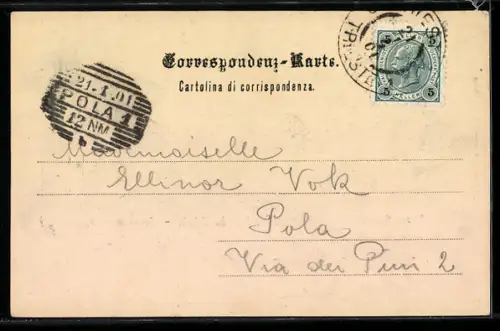 Correspondenz-Karte.
Cartolina di corrispondenza.
5 5
5 HELLER 5
TRIESTE
21.1.01
POLA 1
12 NM
b
Mademoiselle
Ellinor Vok
Pola
Via dei Pini 2